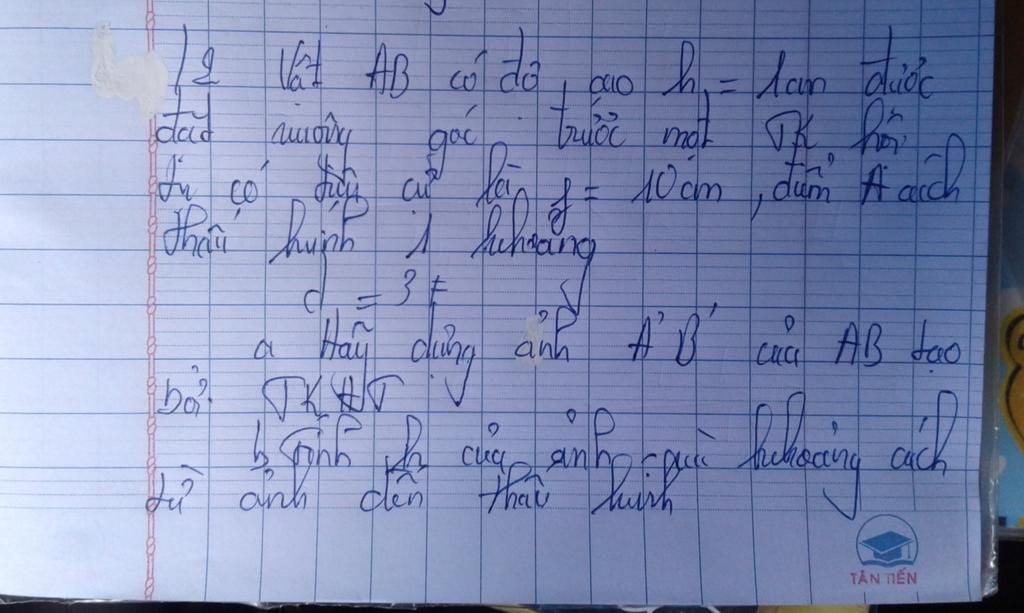 12 Vật AB có độ cao h = 1cm được
đặt vuông góc trước một TK hội
tụ có tiêu cự là f = 10cm, điểm A cách
thấu kính 1 khoảng
d = 3f
a Hãy dựng ảnh A'B' của AB tạo
bởi TKHT
b, Tính h của ảnh và khoảng cách
từ ảnh đến thấu kính
TÂN TIẾN